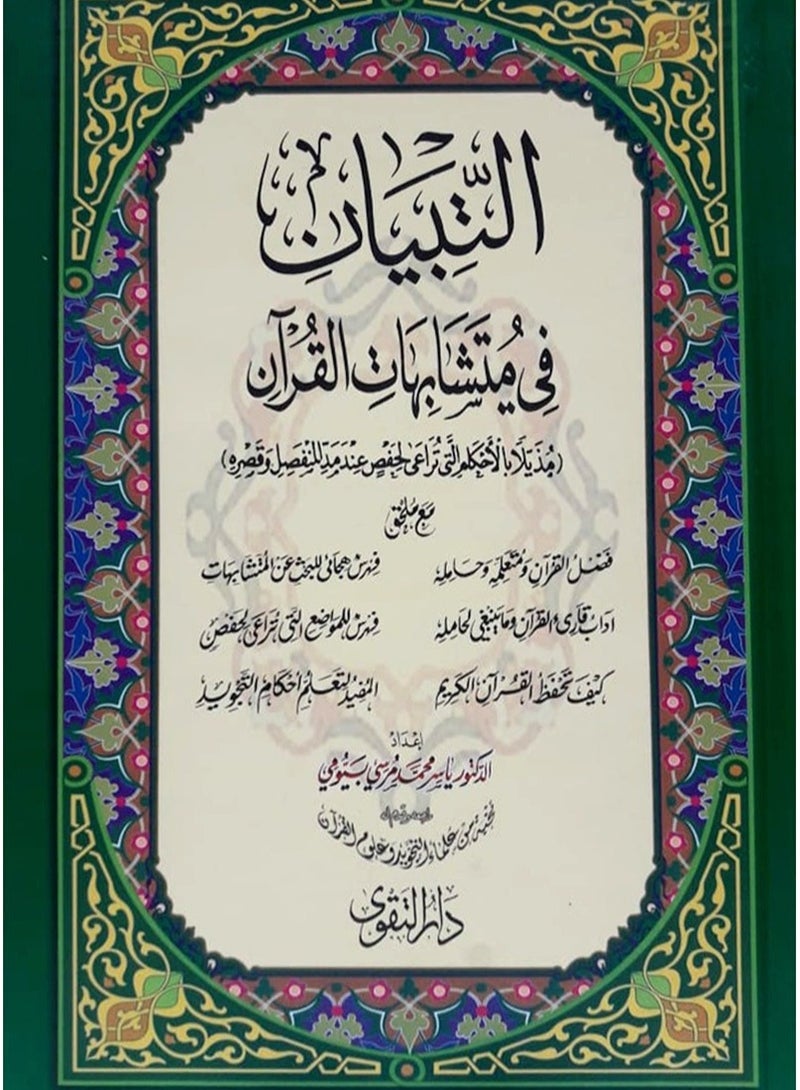 التِّبْيَانِ
فِي مُتَشَابِهَاتِ القُرْآنِ
(مُذَيَّلًا بالأَحْكَامِ الَّتِي تُرَاعَى لِحَفْصٍ عِنْدَ مَدِّ المُنْفَصِلِ وَقَصْرِهِ)
مَعَ مُلْحَقٍ
فَضْلُ القُرْآنِ وَمُتَعَلِّمِهِ وَحَامِلِهِ فِهْرِسٌ هِجَائِيٌّ لِلبَحْثِ عَنِ المُتَشَابِهَاتِ
اداب قَارِئِ القُرْآنِ وَمَا يَنْبَغِي لِحَامِلِهِ فِهْرِسٌ للمَوَاضِعِ التِي تُرَاعَى لِحَفْصٍ
كَيْفَ تَحْفَظُ القُرْآنَ الكَرِيمِ المُفِيدُ لِتَعَلُّمِ أَحْكَامِ التَّجْوِيدِ
إِعْدَادُ
الدكتور ياسر محمد مرسي بيومي
راجعه وقدم له
نخبة من علماء التجويد وعلوم القرآن
دَارُ التَّقْوَى